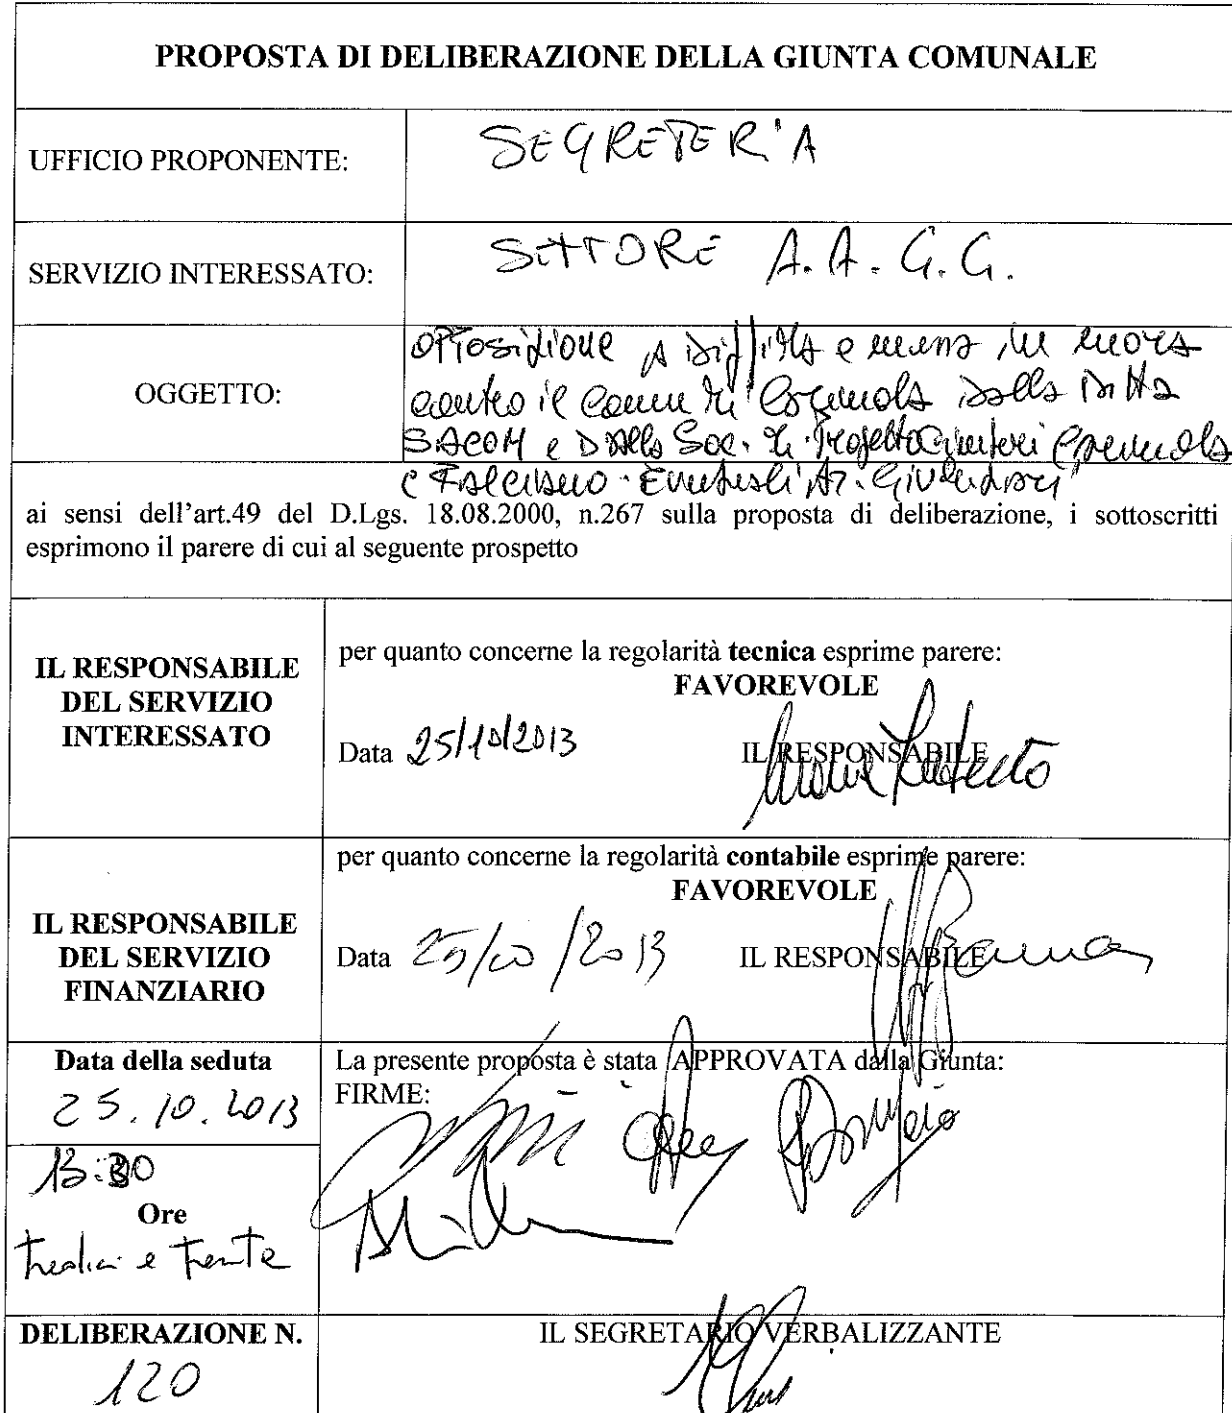 PROPOSTA DI DELIBERAZIONE DELLA GIUNTA COMUNALE
UFFICIO PROPONENTE:
SEGRETERIA
SERVIZIO INTERESSATO:
SETTORE A.A.G.G.
OGGETTO:
opposizione a diffida e messa in mora
contro il comune di dalla Ditta
SACOM e dalla Soc. di Progetto Cimiteri
e Falciano.
ai sensi dell'art.49 del D.Lgs. 18.08.2000, n.267 sulla proposta di deliberazione, i sottoscritti
esprimono il parere di cui al seguente prospetto
IL RESPONSABILE
DEL SERVIZIO
INTERESSATO
per quanto concerne la regolarità tecnica esprime parere:
FAVOREVOLE
Data 25/10/2013 IL RESPONSABILE
IL RESPONSABILE
DEL SERVIZIO
FINANZIARIO
per quanto concerne la regolarità contabile esprime parere:
FAVOREVOLE
Data 25/10/2013 IL RESPONSABILE
Data della seduta
25.10.2013
13:30
Ore
tredici e trenta
La presente proposta è stata APPROVATA dalla Giunta:
FIRME:
DELIBERAZIONE N.
120
IL SEGRETARIO VERBALIZZANTE